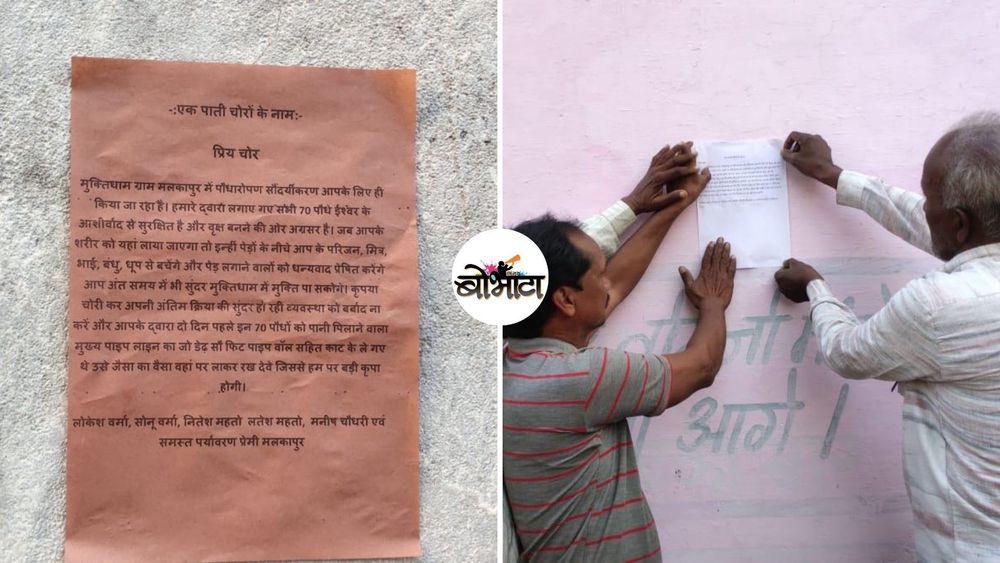 -:एक पाती चोरों के नाम:-
प्रिय चोर
मुक्तिधाम ग्राम मलकापुर में पौधारोपण सौंदर्यीकरण आपके लिए ही
किया जा रहा है। हमारे द्वारा लगाए गए सभी 70 पौधे ईश्वर के
आशीर्वाद से सुरक्षित है और वृक्ष बनने की ओर अग्रसर है। जब आपके
शरीर को यहां लाया जाएगा तो इन्हीं पेड़ों के नीचे आप के परिजन, मित्र,
भाई, बंधु, धूप से बचेंगे और पेड़ लगाने वालों को धन्यवाद प्रेषित करेंगे
आप अंत समय में भी सुंदर मुक्तिधाम में मुक्ति पा सकोगे। कृपया
चोरी कर अपनी अंतिम क्रिया की सुंदर हो रही व्यवस्था को बर्बाद ना
करें और आपके द्वारा दो दिन पहले इन 70 पौधों को पानी पिलाने वाला
मुख्य पाइप लाइन का जो डेढ़ सौ फिट पाइप वॉल सहित काट के ले गए
थे उसे जैसा का वैसा वहां पर लाकर रख देवे जिससे हम पर बड़ी कृपा
होगी।
लोकेश वर्मा, सोनू वर्मा, नितेश महतो लतेश महतो, मनीष चौधरी एवं
समस्त पर्यावरण प्रेमी मलकापुर
बोभाटा
आगे।